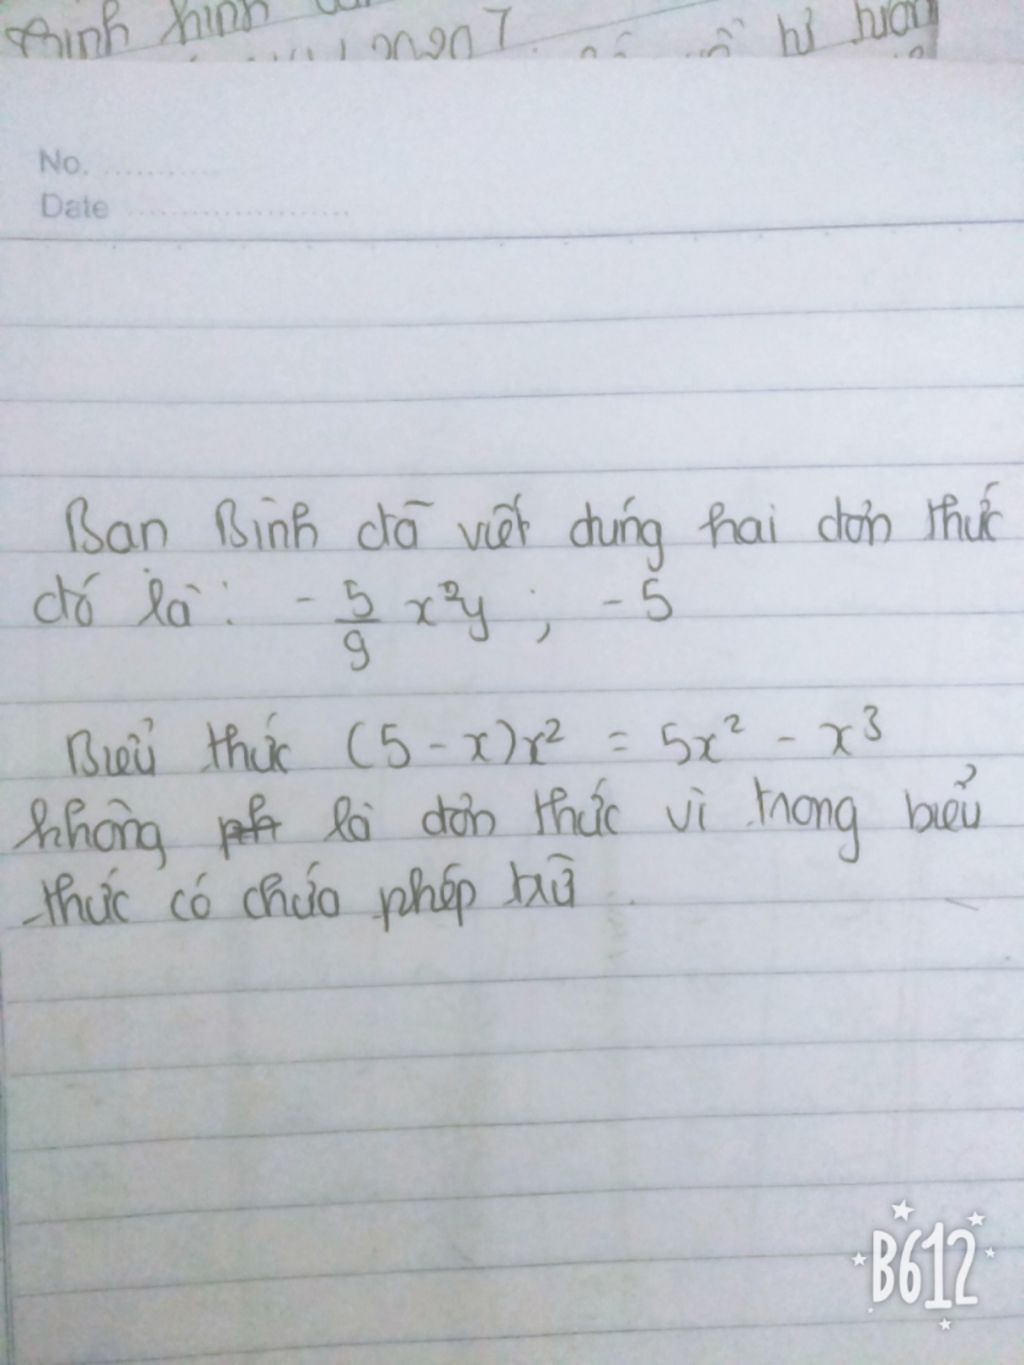 hình
No. ..........
Date ....................
Bạn Bình đã viết đúng hai đơn thức
đó là: - 5/9 x²y ; -5
Biểu thức (5 - x)x² = 5x² - x³
không là đơn thức vì trong biểu
thức có chứa phép trừ.
B612